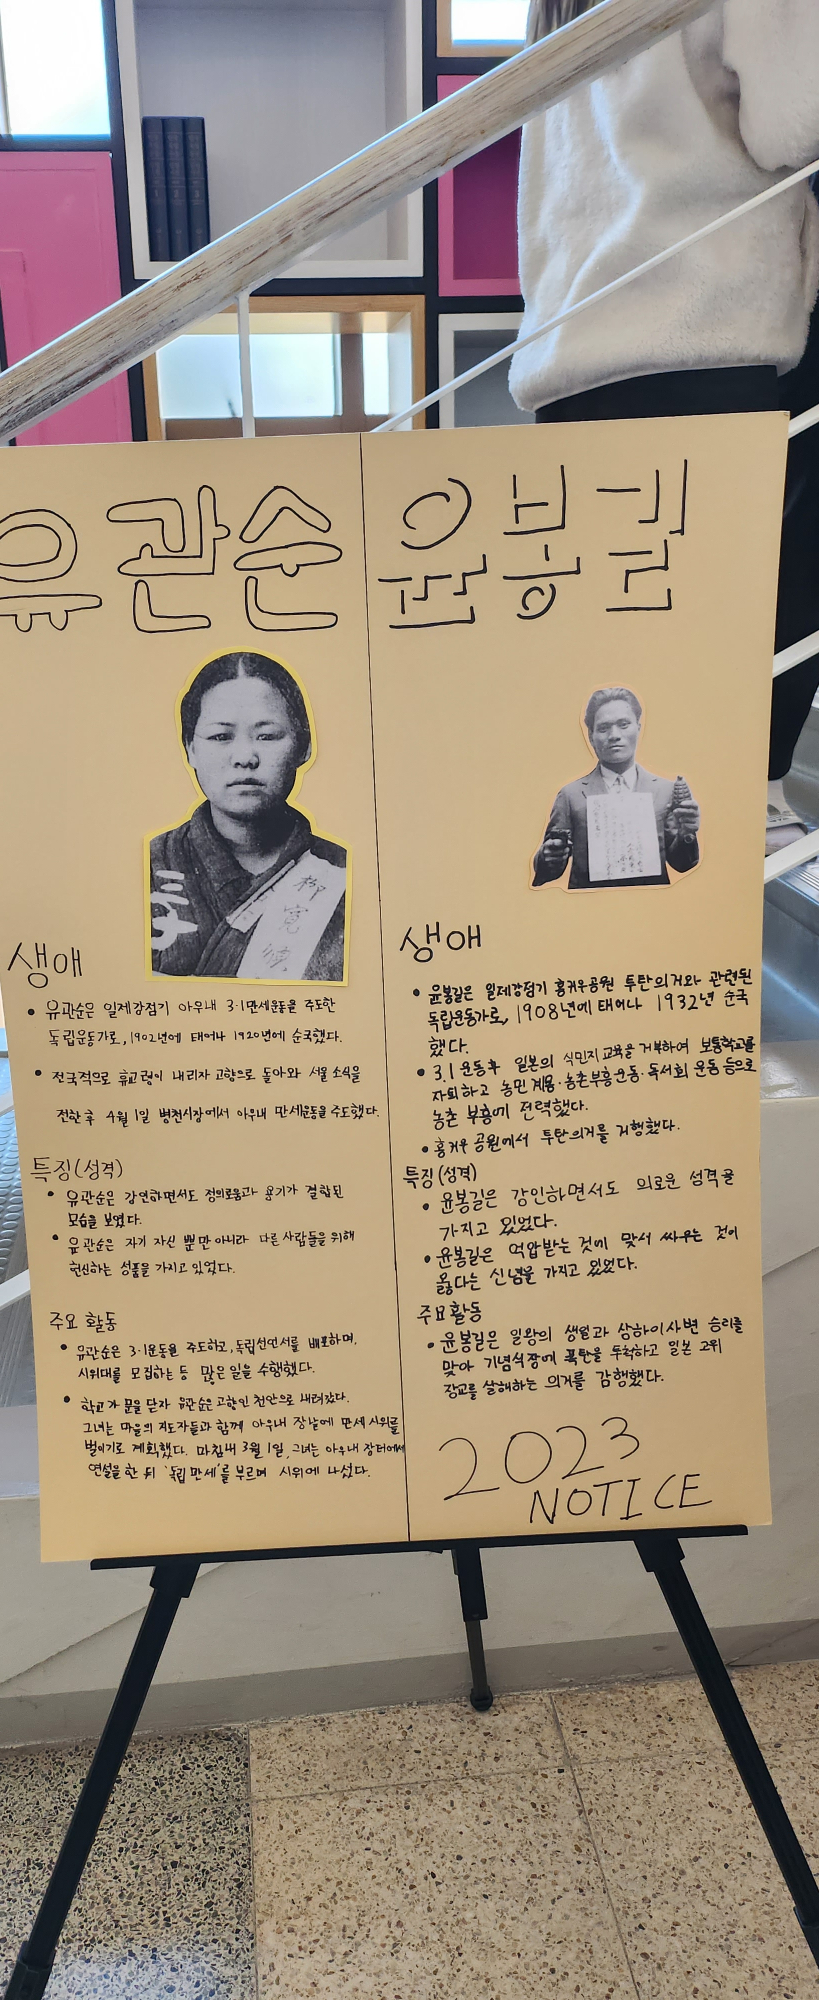 유관순
생애
• 유관순은 일제강점기 아우내 3·1만세운동을 주도한
독립운동가로, 1902년에 태어나 1920년에 순국했다.
• 전국적으로 휴교령이 내리자 고향으로 돌아와 서울 소식을
전한 후 4월 1일 병천시장에서 아우내 만세운동을 주도했다.
특징(성격)
• 유관순은 강인하면서도 정의로움과 용기가 결합된
모습을 보였다.
• 유관순은 자기 자신 뿐만 아니라 다른 사람들을 위해
헌신하는 성품을 가지고 있었다.
주요 활동
• 유관순은 3·1운동을 주도하고, 독립선언서를 배포하며,
시위대를 모집하는 등 많은 일을 수행했다.
• 학교가 문을 닫자 유관순은 고향인 천안으로 내려갔다.
그녀는 마을의 지도자들과 함께 아우내 장날에 만세시위를
벌이기로 계획했다. 마침내 3월 1일, 그녀는 아우내 장터에서
연설을 한 뒤 '독립 만세'를 부르며 시위에 나섰다.
윤봉길
생애
• 윤봉길은 일제강점기 훙커우공원 투탄의거와 관련된
독립운동가로, 1908년에 태어나 1932년 순국
했다.
• 3.1 운동후 일본의 식민지 교육을 거부하여 보통학교를
자퇴하고 농민 계몽·농촌부흥운동·독서회 운동 등으로
농촌 부흥에 전력했다.
• 훙커우 공원에서 투탄의거를 거행했다.
특징(성격)
• 윤봉길은 강인하면서도 의로운 성격을
가지고 있었다.
• 윤봉길은 억압받는 것에 맞서 싸우는 것이
옳다는 신념을 가지고 있었다.
주요활동
• 윤봉길은 일왕의 생일과 상하이사변 승리를
맞아 기념식장에 폭탄을 투척하고 일본 고위
장교를 살해하는 의거를 감행했다.
2023
NOTICE